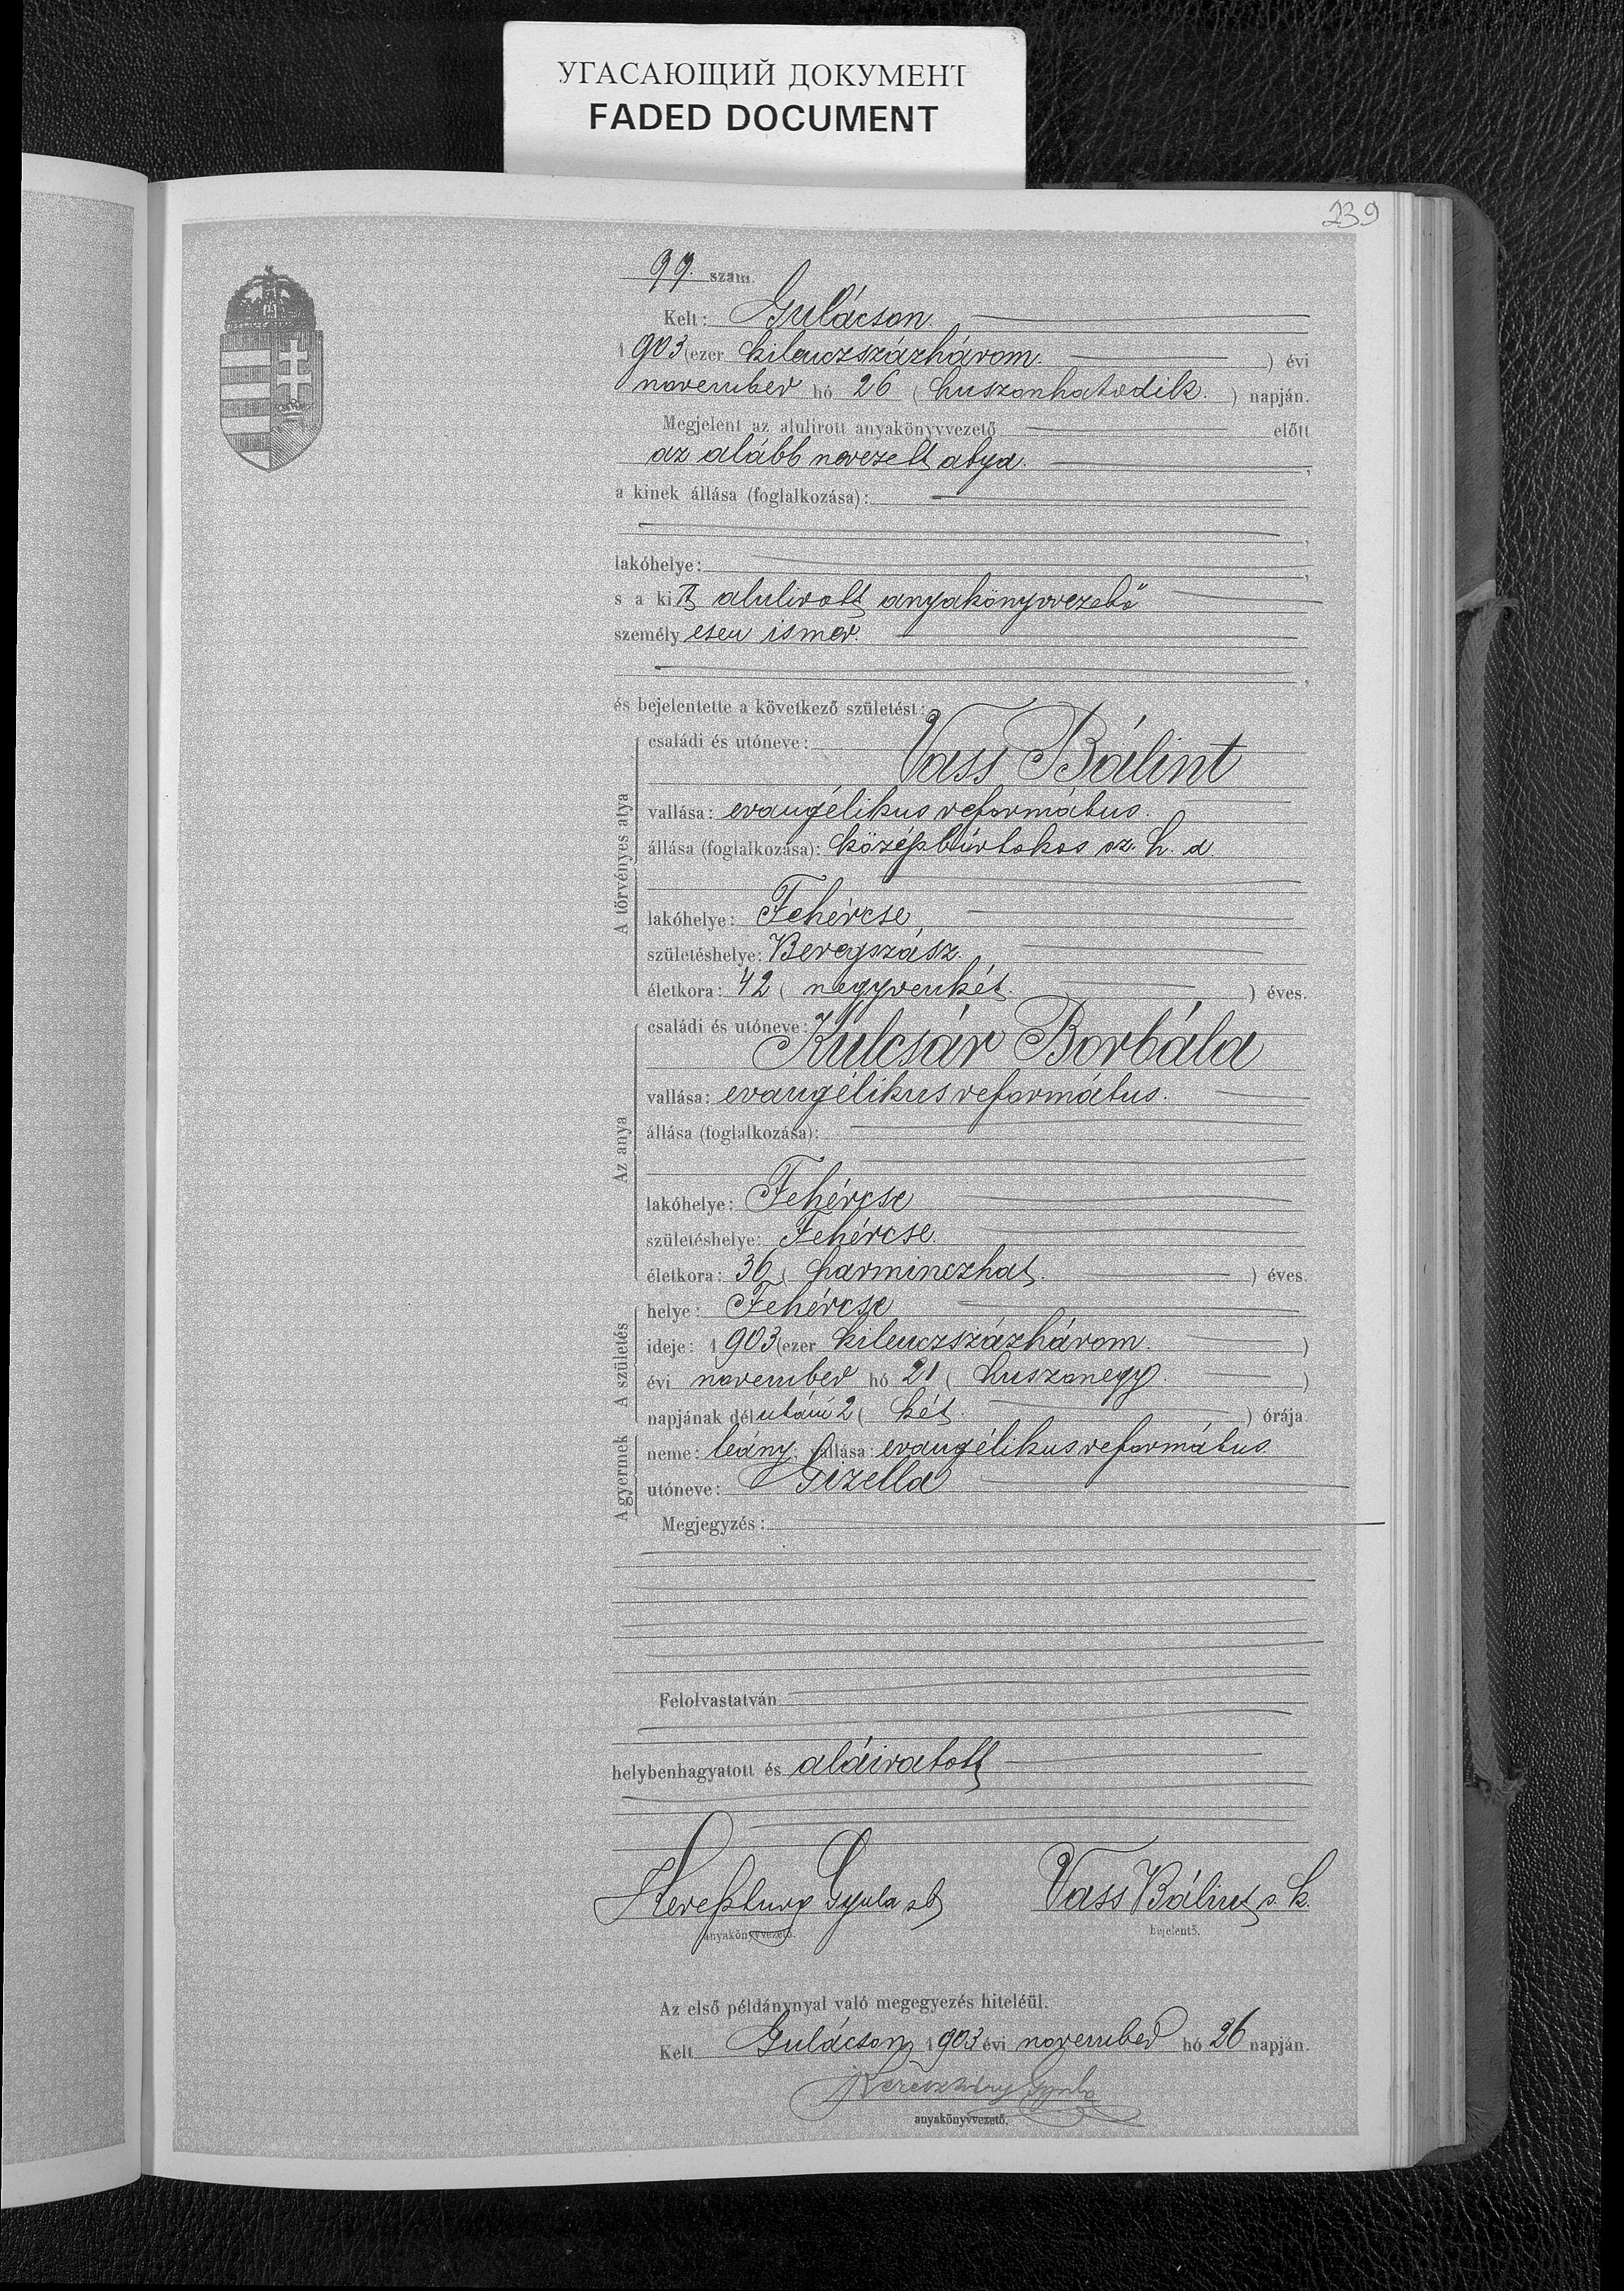 УГАСАЮЩИЙ ДОКУМЕНТ
FADED DOCUMENT
239
99. szám.
Kelt: Gulácson.
1903 (ezer kilenczszázhárom. ) évi
november hó 26 ( huszonhatodik. ) napján.
Megjelent az alulirott anyakönyvvezető előtt
az alább nevezett atya.
a kinek állása (foglalkozása):
lakóhelye:
s a kit alulirott anyakönyvvezető
személyesen ismer.
és bejelentette a következő születést:
A törvényes atya
családi és utóneve:
Vass Bálint
vallása: evangélikus református.
állása (foglalkozása): középbirtokos
lakóhelye: Fehércse
születéshelye: Beregszász.
életkora: 42 ( negyvenkét. ) éves.
Az anya
családi és utóneve:
Kulcsár Borbála
vallása: evangélikus református.
állása (foglalkozása):
lakóhelye: Fehércse
születéshelye: Fehércse.
életkora: 36 ( harminczhat. ) éves.
A születés
helye: Fehércse
ideje: 1903 (ezer kilenczszázhárom. )
évi november hó 21 ( huszonegy. )
napjának délutáni 2 ( két. ) órája.
A gyermek
neme: leány. vallása: evangélikus református.
utóneve: Gizella
Megjegyzés:
Felolvastatván
helybenhagyatott és aláiratott
Gyula Vass Bálint s. k.
anyakönyvvezető. bejelentő.
Az első példánynyal való megegyezés hiteléül.
Kelt Gulácson, 1903 évi november hó 26 napján.
Gyula
anyakönyvvezető.